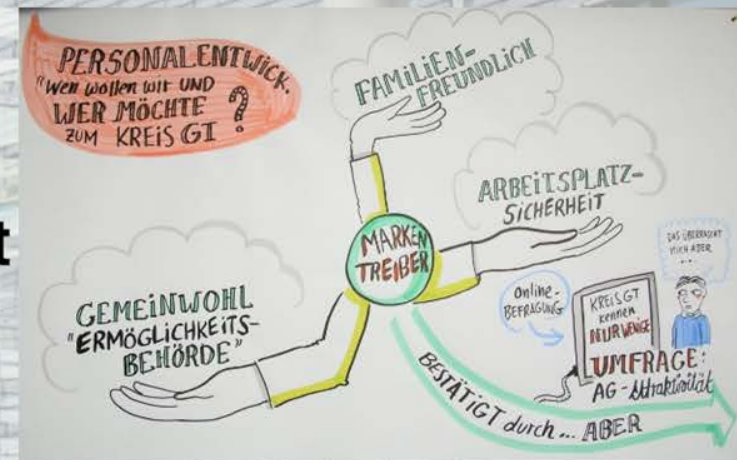 PERSONALENTWICK.
"Wen wollen wir UND
WER MÖCHTE
ZUM KREIS GI ?
FAMILIEN-
FREUNDLICH
ARBEITSPLATZ-
SICHERHEIT
MARKEN
TREIBER
GEMEINWOHL
"ERMÖGLICHKEITS-
BEHÖRDE"
Online-
BEFRAGUNG
KREIS GT
kennen
NUR WENIGE
DAS ÜBERRASCHT
MICH ABER
...
UMFRAGE:
AG-Attraktivität
BESTÄTIGT durch... ABER
t